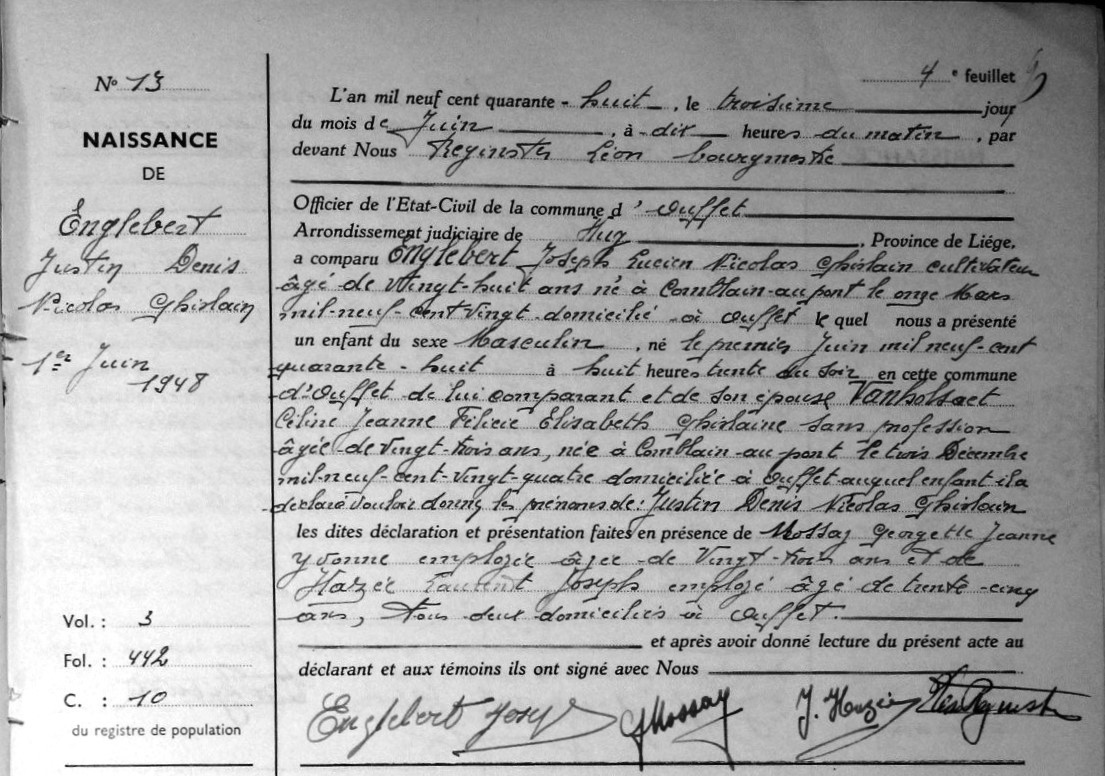 N° 13
NAISSANCE
DE
Englebert
Justin Denis
Nicolas Ghislain
1er Juin
1948
Vol. : 3
Fol. : 442
C. : 10
du registre de population
4 e feuillet
L'an mil neuf cent quarante - huit, le troisième jour
du mois de Juin, à dix heures du matin, par
devant Nous Reginster Léon bourgmestre
Officier de l'Etat-Civil de la commune d'Ouffet
Arrondissement judiciaire de Huy, Province de Liége,
a comparu Englebert Joseph Lucien Nicolas Ghislain cultivateur
âgé de vingt-huit ans né à Comblain-au-pont le onze Mars
mil-neuf-cent vingt domicilié à Ouffet le quel nous a présenté
un enfant du sexe Masculin, né le premier Juin mil neuf-cent
quarante-huit à huit heures trente du soir en cette commune
d'Ouffet de lui comparant et de son épouse Vanholsaet
Céline Jeanne Félicie Elisabeth Ghislaine sans profession
âgée de vingt-trois ans, née à Comblain-au-pont le trois Décembre
mil-neuf-cent-vingt-quatre domiciliée à Ouffet auquel enfant il a
déclaré vouloir donner les prénoms de : Justin Denis Nicolas Ghislain
les dites déclaration et présentation faites en présence de Mossay Georgette Jeanne
Yvonne employée âgée de vingt-trois ans et de
Hazée Laurent Joseph employé âgé de trente-cinq
ans, tous deux domiciliés à Ouffet.
et après avoir donné lecture du présent acte au
déclarant et aux témoins ils ont signé avec Nous
Englebert Josep GMossay J. Hazée